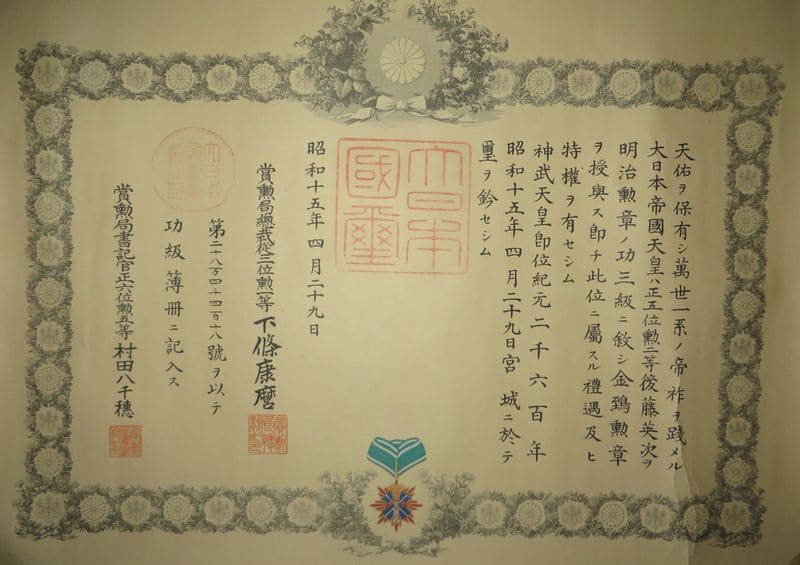 天佑ヲ保有シ萬世一系ノ帝祚ヲ踐メル
大日本帝國天皇ハ正五位勲二等後藤英次ヲ
明治勲章ノ功三級ニ敘シ金鵄勲章
ヲ授與ス即チ此位ニ屬スル禮遇及ヒ
特權ヲ有セシム
神武天皇即位紀元二千六百年
昭和十五年四月二十九日宮城ニ於テ
璽ヲ鈐セシム
大日本
國璽
昭和十五年四月二十九日
賞勲局總裁從三位勲一等下條康麿
第二十八万四千四百十八號ヲ以テ
功級簿冊ニ記入ス
賞勲局書記官正六位勲五等村田八千穗